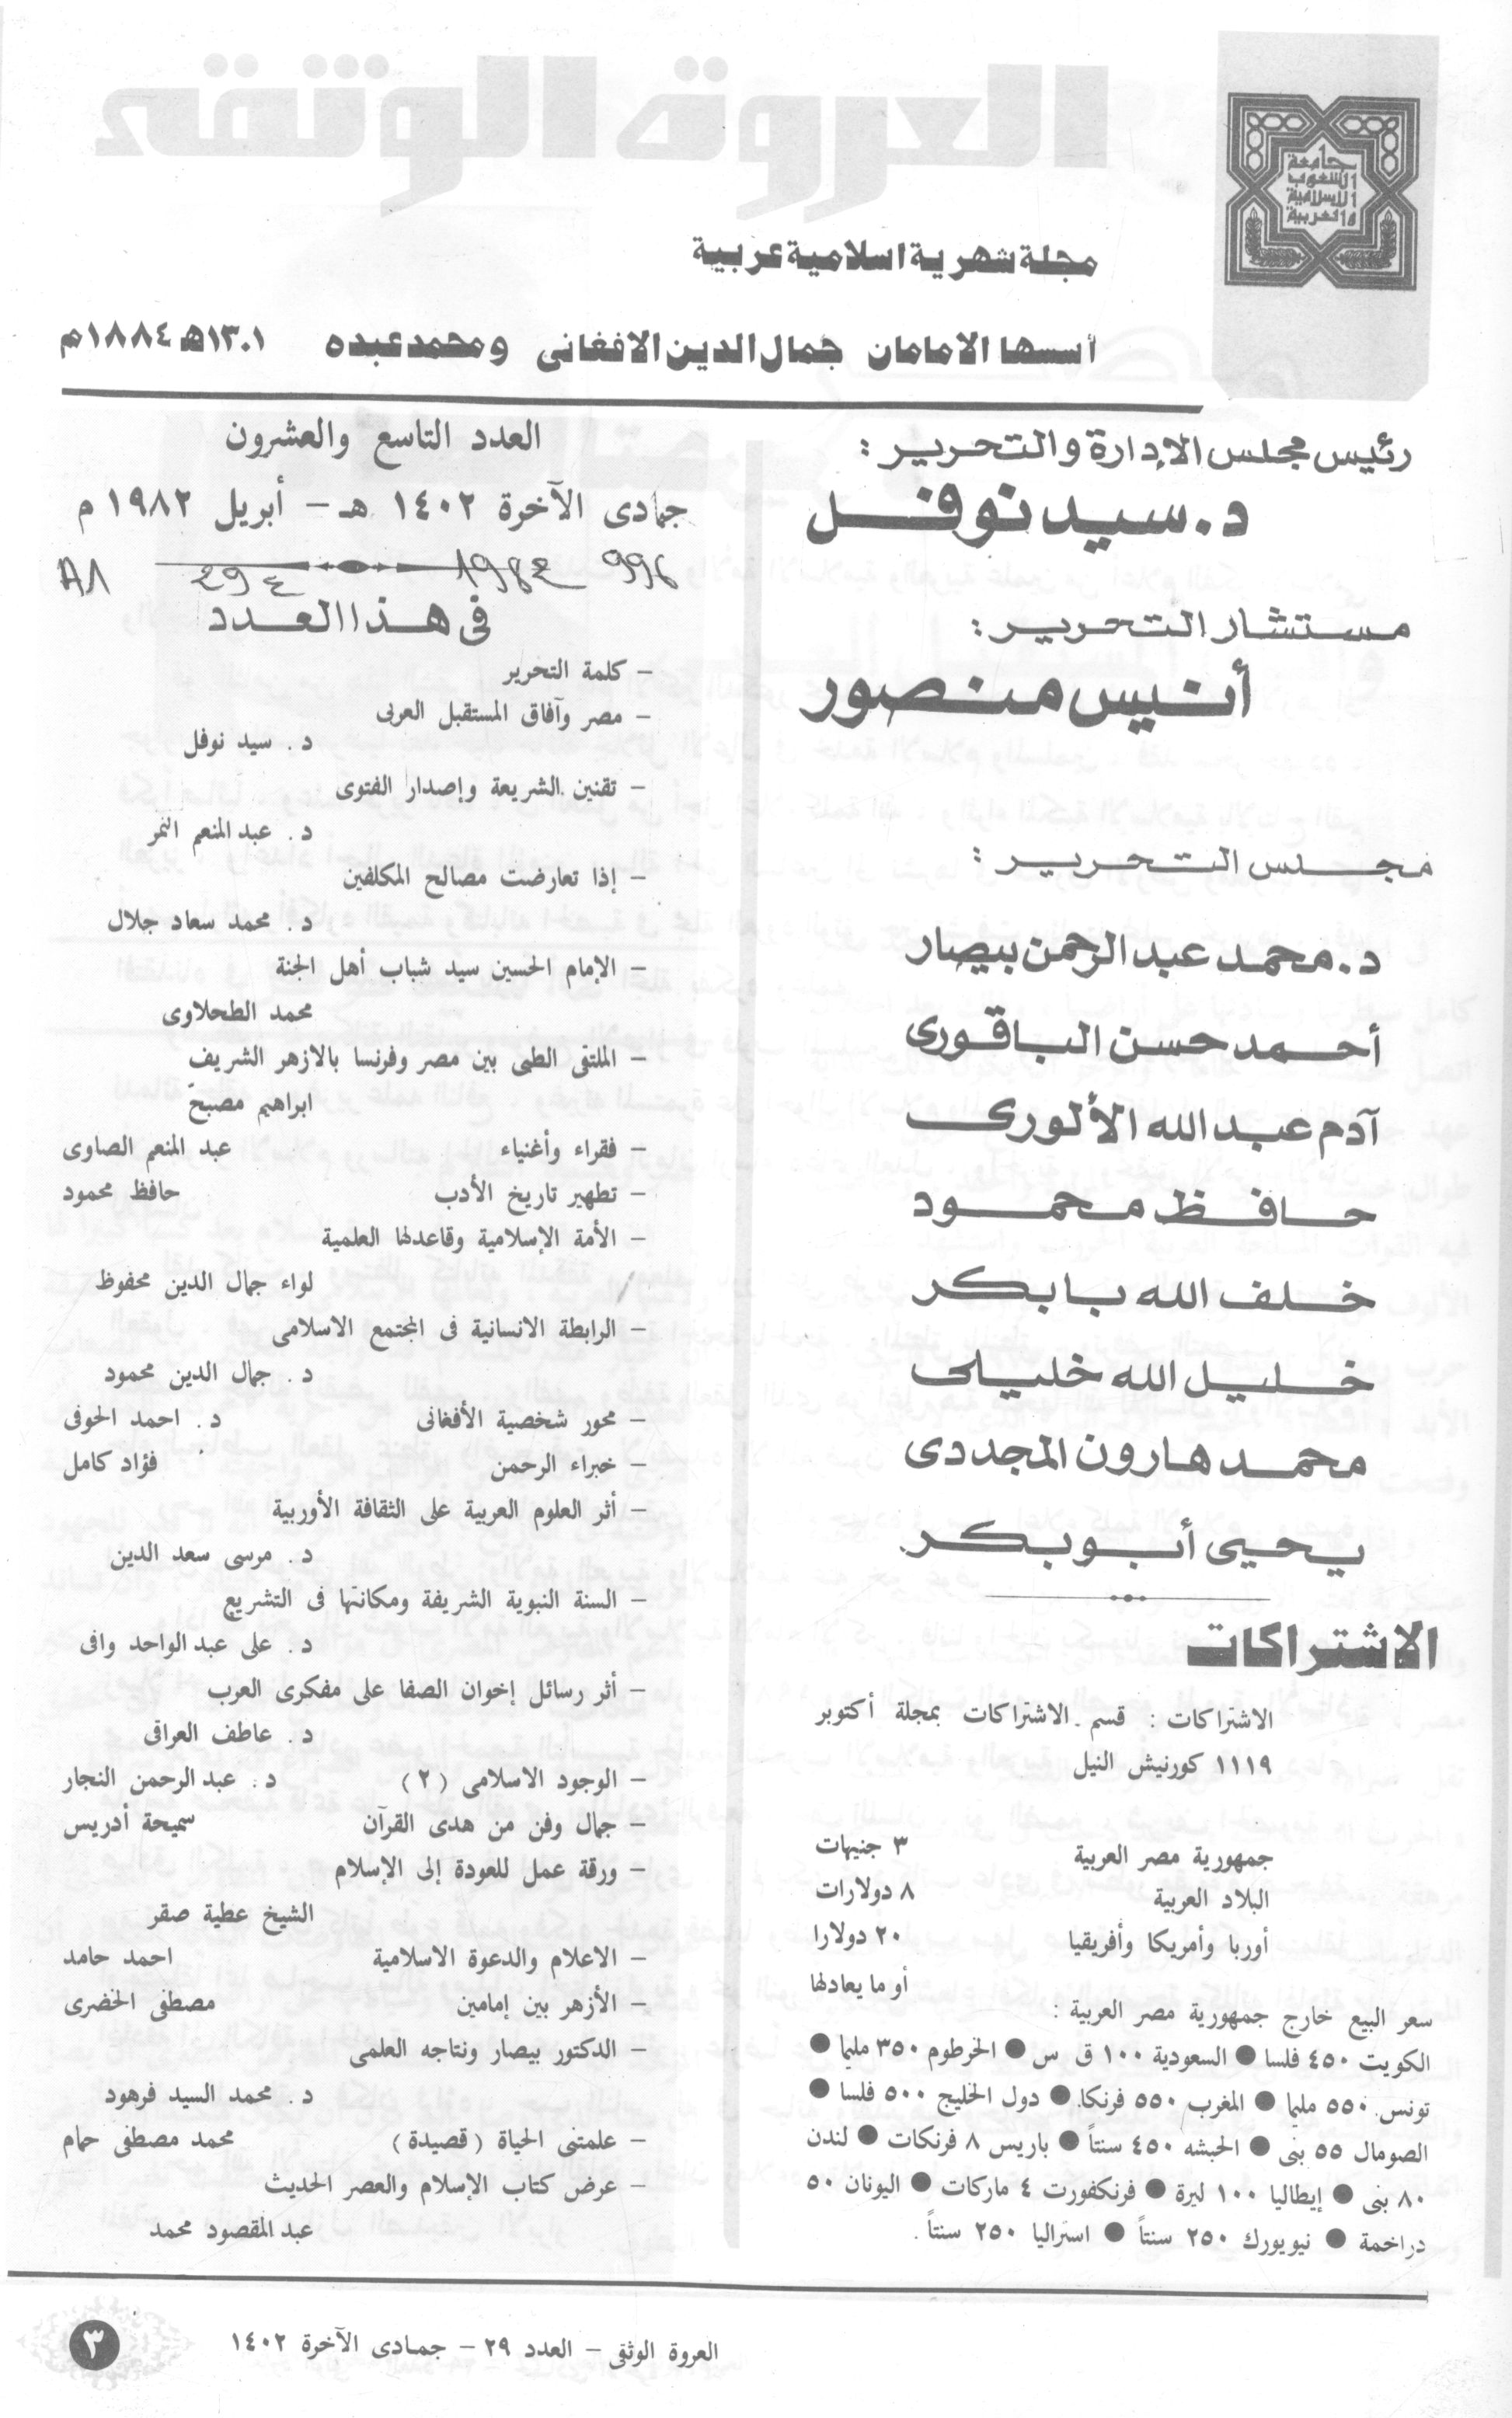 العروة الوثقى
جامعة
الشعوب
الإسلامية
والعربية
مجلة شهرية اسلامية عربية
أسسها الامامان جمال الدين الافغانى ومحمد عبده ١٣٠١هـ ١٨٨٤م
رئيس مجلس الإدارة والتحرير :
د. سيد نوفل
مستشار التحرير :
أنيس منصور
مجلس التحرير :
د. محمد عبد الرحمن بيصار
أحمد حسن الباقورى
آدم عبد الله الألورى
حافظ محمود
خلف الله بابكر
خليل الله خليلى
محمد هارون المجددى
يحيى أبو بكر
الاشتراكات
الاشتراكات : قسم الاشتراكات بمجلة أكتوبر
١١١٩ كورنيش النيل
جمهورية مصر العربية ٣ جنيهات
البلاد العربية ٨ دولارات
أوربا وأمريكا وأفريقيا ٢٠ دولارا
أو ما يعادلها
سعر البيع خارج جمهورية مصر العربية :
الكويت ٤٥٠ فلسا ● السعودية ١٠٠ ق س ● الخرطوم ٣٥٠ مليما ●
تونس ٥٥٠ مليما ● المغرب ٥٥٠ فرنكا ● دول الخليج ٥٠٠ فلسا ●
الصومال ٥٥ بنى ● الحبشه ٤٥٠ سنتاً ● باريس ٨ فرنكات ● لندن
٨٠ بنى ● إيطاليا ١٠٠ ليرة ● فرنكفورت ٤ ماركات ● اليونان ٥٠
دراخمة ● نيويورك ٢٥٠ سنتاً ● استراليا ٢٥٠ سنتاً .
العدد التاسع والعشرون
جمادى الآخرة ١٤٠٢ هـ – أبريل ١٩٨٢ م
996
فى هذا العدد
– كلمة التحرير
– مصر وآفاق المستقبل العربى
د . سيد نوفل
– تقنين الشريعة وإصدار الفتوى
د . عبد المنعم النمر
– إذا تعارضت مصالح المكلفين
د . محمد سعاد جلال
– الإمام الحسين سيد شباب أهل الجنة
محمد الطحلاوى
– الملتقى الطبى بين مصر وفرنسا بالازهر الشريف
ابراهيم مصبح
– فقراء وأغنياء عبد المنعم الصاوى
– تطهير تاريخ الأدب حافظ محمود
– الأمة الإسلامية وقاعدلها العلمية
لواء جمال الدين محفوظ
– الرابطة الانسانية فى المجتمع الاسلامى
د . جمال الدين محمود
– محور شخصية الأفغانى د . احمد الحوفى
– خبراء الرحمن فؤاد كامل
– أثر العلوم العربية على الثقافة الأوربية
د . مرسى سعد الدين
– السنة النبوية الشريفة ومكانتها فى التشريع
د . على عبد الواحد وافى
– أثر رسائل إخوان الصفا على مفكرى العرب
د . عاطف العراقى
– الوجود الاسلامى ( ٢ ) د . عبد الرحمن النجار
– جمال وفن من هدى القرآن سميحة أدريس
– ورقة عمل للعودة إلى الإسلام
الشيخ عطية صقر
– الاعلام والدعوة الاسلامية احمد حامد
– الأزهر بين إمامين مصطفى الخضرى
– الدكتور بيصار ونتاجه العلمى
د . محمد السيد فرهود
– علمتنى الحياة ( قصيدة ) محمد مصطفى حمام
– عرض كتاب الإسلام والعصر الحديث
عبد المقصود محمد
العروة الوثقى – العدد ٢٩ – جمادى الآخرة ١٤٠٢
٣